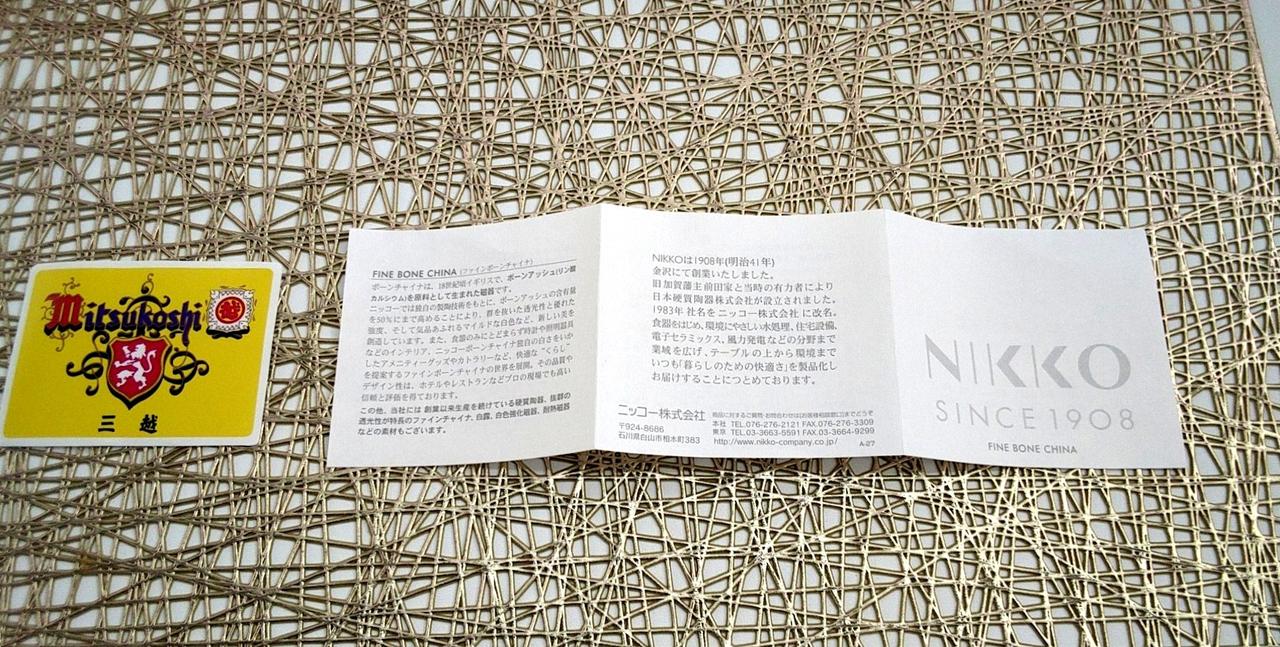 Mitsukoshi
越
三越
FINE BONE CHINA (ファインボーンチャイナ)
ボーンチャイナは、18世紀頃イギリスで、ボーンアッシュ(リン酸
カルシウム)を原料として生まれた磁器です。
ニッコーでは独自の製陶技術をもとに、ボーンアッシュの含有量
を50%にまで高めることにより、群を抜いた透光性と優れた
強度、そして気品あふれるマイルドな白色など、新しい美を
創造しています。また、食器のみにとどまらず時計や照明器具
などのインテリア、ニッコーボーンチャイナ独自の白さをいか
したアメニティグッズやカトラリーなど、快適な“くらし”
を提案するファインボーンチャイナの世界を展開。その品質や
デザイン性は、ホテルやレストランなどプロの現場でも高い
信頼と評価を得ております。
この他、当社には創業以来生産を続けている硬質陶器、抜群の
透光性が特長のファインチャイナ、白露、白色強化磁器、耐熱磁器
などの素材もございます。
NIKKOは1908年(明治41年)
金沢にて創業いたしました。
旧加賀藩主前田家と当時の有力者により
日本硬質陶器株式会社が設立されました。
1983年 社名をニッコー株式会社 に改名。
食器をはじめ、環境にやさしい水処理、住宅設備、
電子セラミックス、風力発電などの分野まで
業域を広げ、テーブルの上から環境まで
いつも「暮らしのための快適さ」を製品化し
お届けすることにつとめております。
ニッコー株式会社
〒924-8686
石川県白山市相木町383
商品に対するご質問・お問合わせは[お客様相談窓口]までどうぞ
本社 TEL.076-276-2121 FAX.076-276-3309
東京 TEL.03-3663-5591 FAX.03-3664-9299
http://www.nikko-company.co.jp/ A-27
NIKKO
SINCE 1908
FINE BONE CHINA